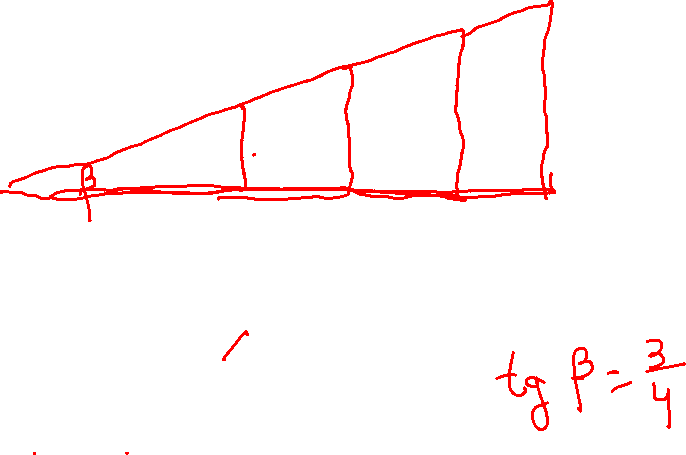 β
tg β = 3/4